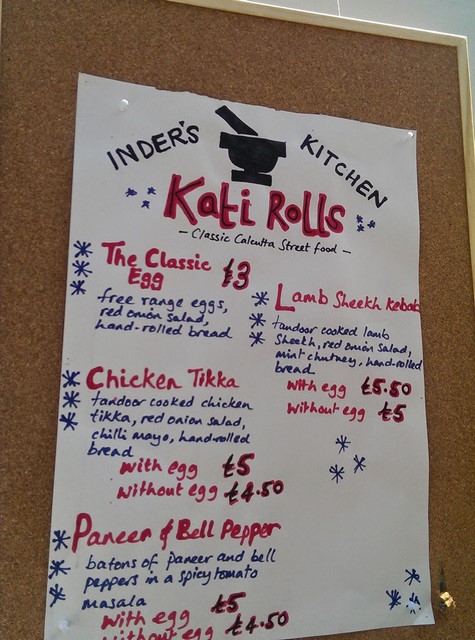 INDER'S KITCHEN
Kati Rolls
- Classic Calcutta Street food -
The Classic
Egg £3
free range eggs,
red onion salad,
hand-rolled bread
Lamb Sheekh Kebab
tandoor cooked lamb
Sheekh, red onion salad,
mint chutney, hand-rolled
bread
with egg £5.50
without egg £5
Chicken Tikka
tandoor cooked chicken
tikka, red onion salad,
chilli mayo, hand-rolled
bread
with egg £5
without egg £4.50
Paneer & Bell Pepper
batons of paneer and bell
peppers in a spicy tomato
masala
with egg £5
without egg £4.50